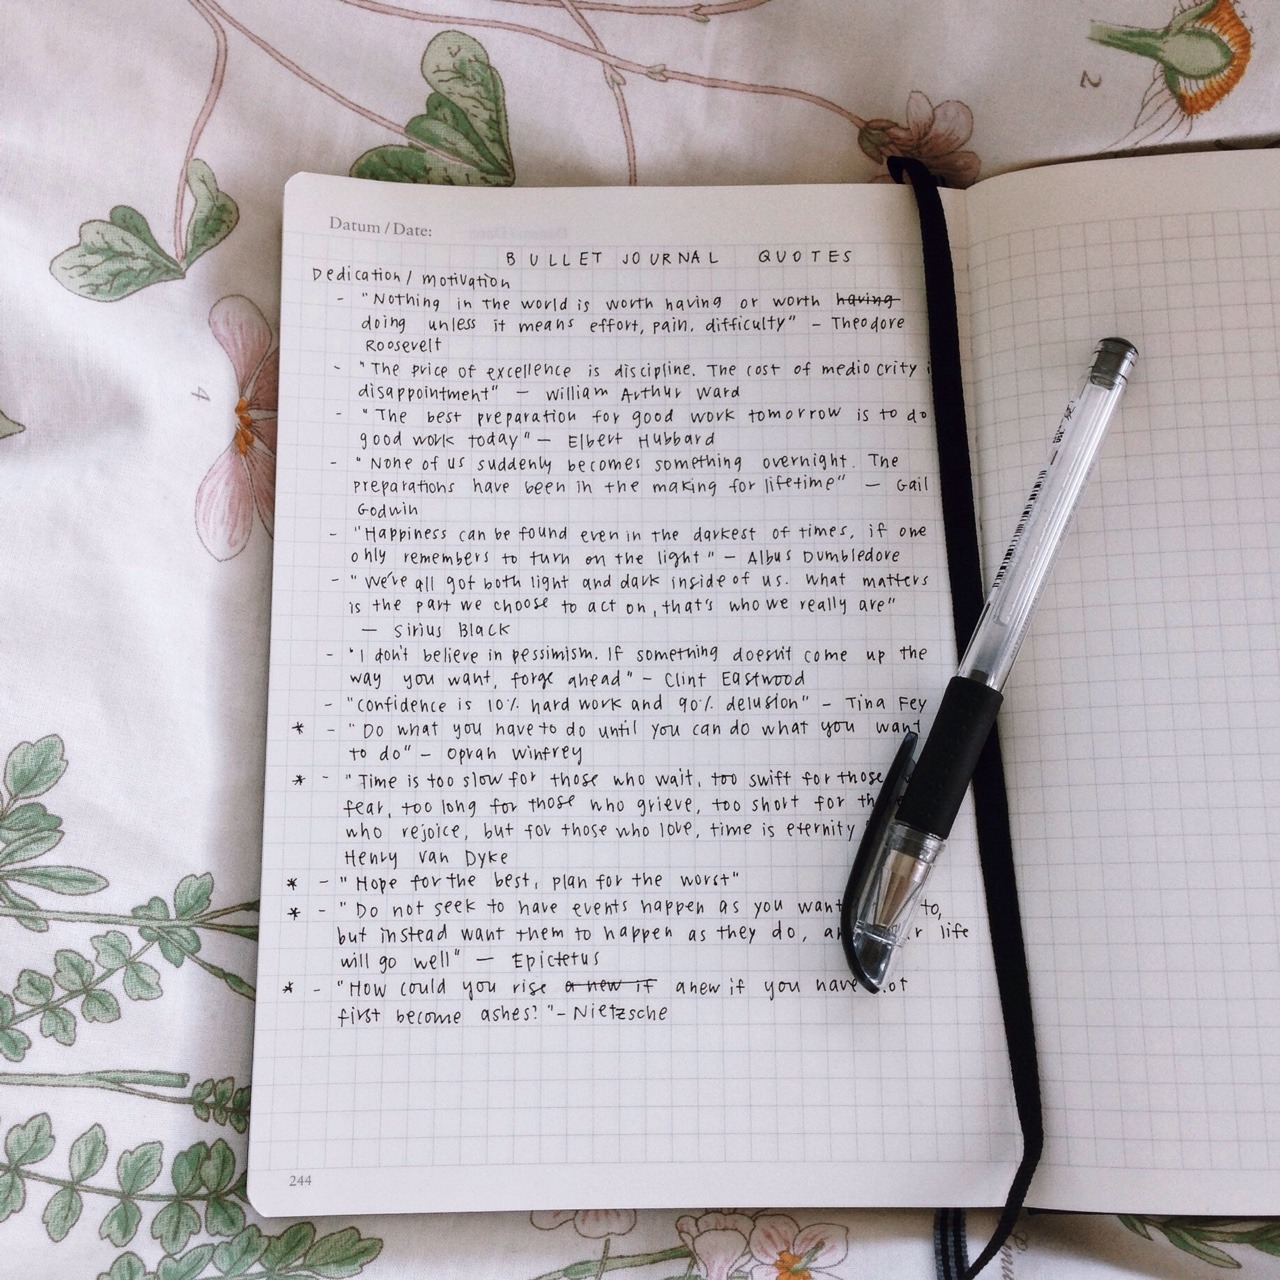 2
4
Datum / Date:
BULLET JOURNAL QUOTES
Dedication / motivation
- "Nothing in the world is worth having or worth having
doing unless it means effort, pain, difficulty" - Theodore
Roosevelt
- "The price of excellence is discipline. The cost of mediocrity
disappointment" - William Arthur Ward
- "The best preparation for good work tomorrow is to do
good work today" - Elbert Hubbard
- "None of us suddenly becomes something overnight. The
preparations have been in the making for lifetime" - Gail
Godwin
- "Happiness can be found even in the darkest of times, if one
only remembers to turn on the light" - Albus Dumbledore
- "We've all got both light and dark inside of us. What matters
is the part we choose to act on, that's who we really are"
- Sirius Black
- "I don't believe in pessimism. If something doesn't come up the
way you want, forge ahead" - Clint Eastwood
- "Confidence is 10% hard work and 90% delusion" - Tina Fey
* - "Do what you have to do until you can do what you want
to do" - Oprah Winfrey
* - "Time is too slow for those who wait, too swift for those
fear, too long for those who grieve, too short for
who rejoice, but for those who love, time is eternity
Henry Van Dyke
* - "Hope for the best, plan for the worst"
* - "Do not seek to have events happen as you want to,
but instead want them to happen as they do, life
will go well" - Epictetus
* - "How could you rise a new if anew if you have
first become ashes?" - Nietzsche
244